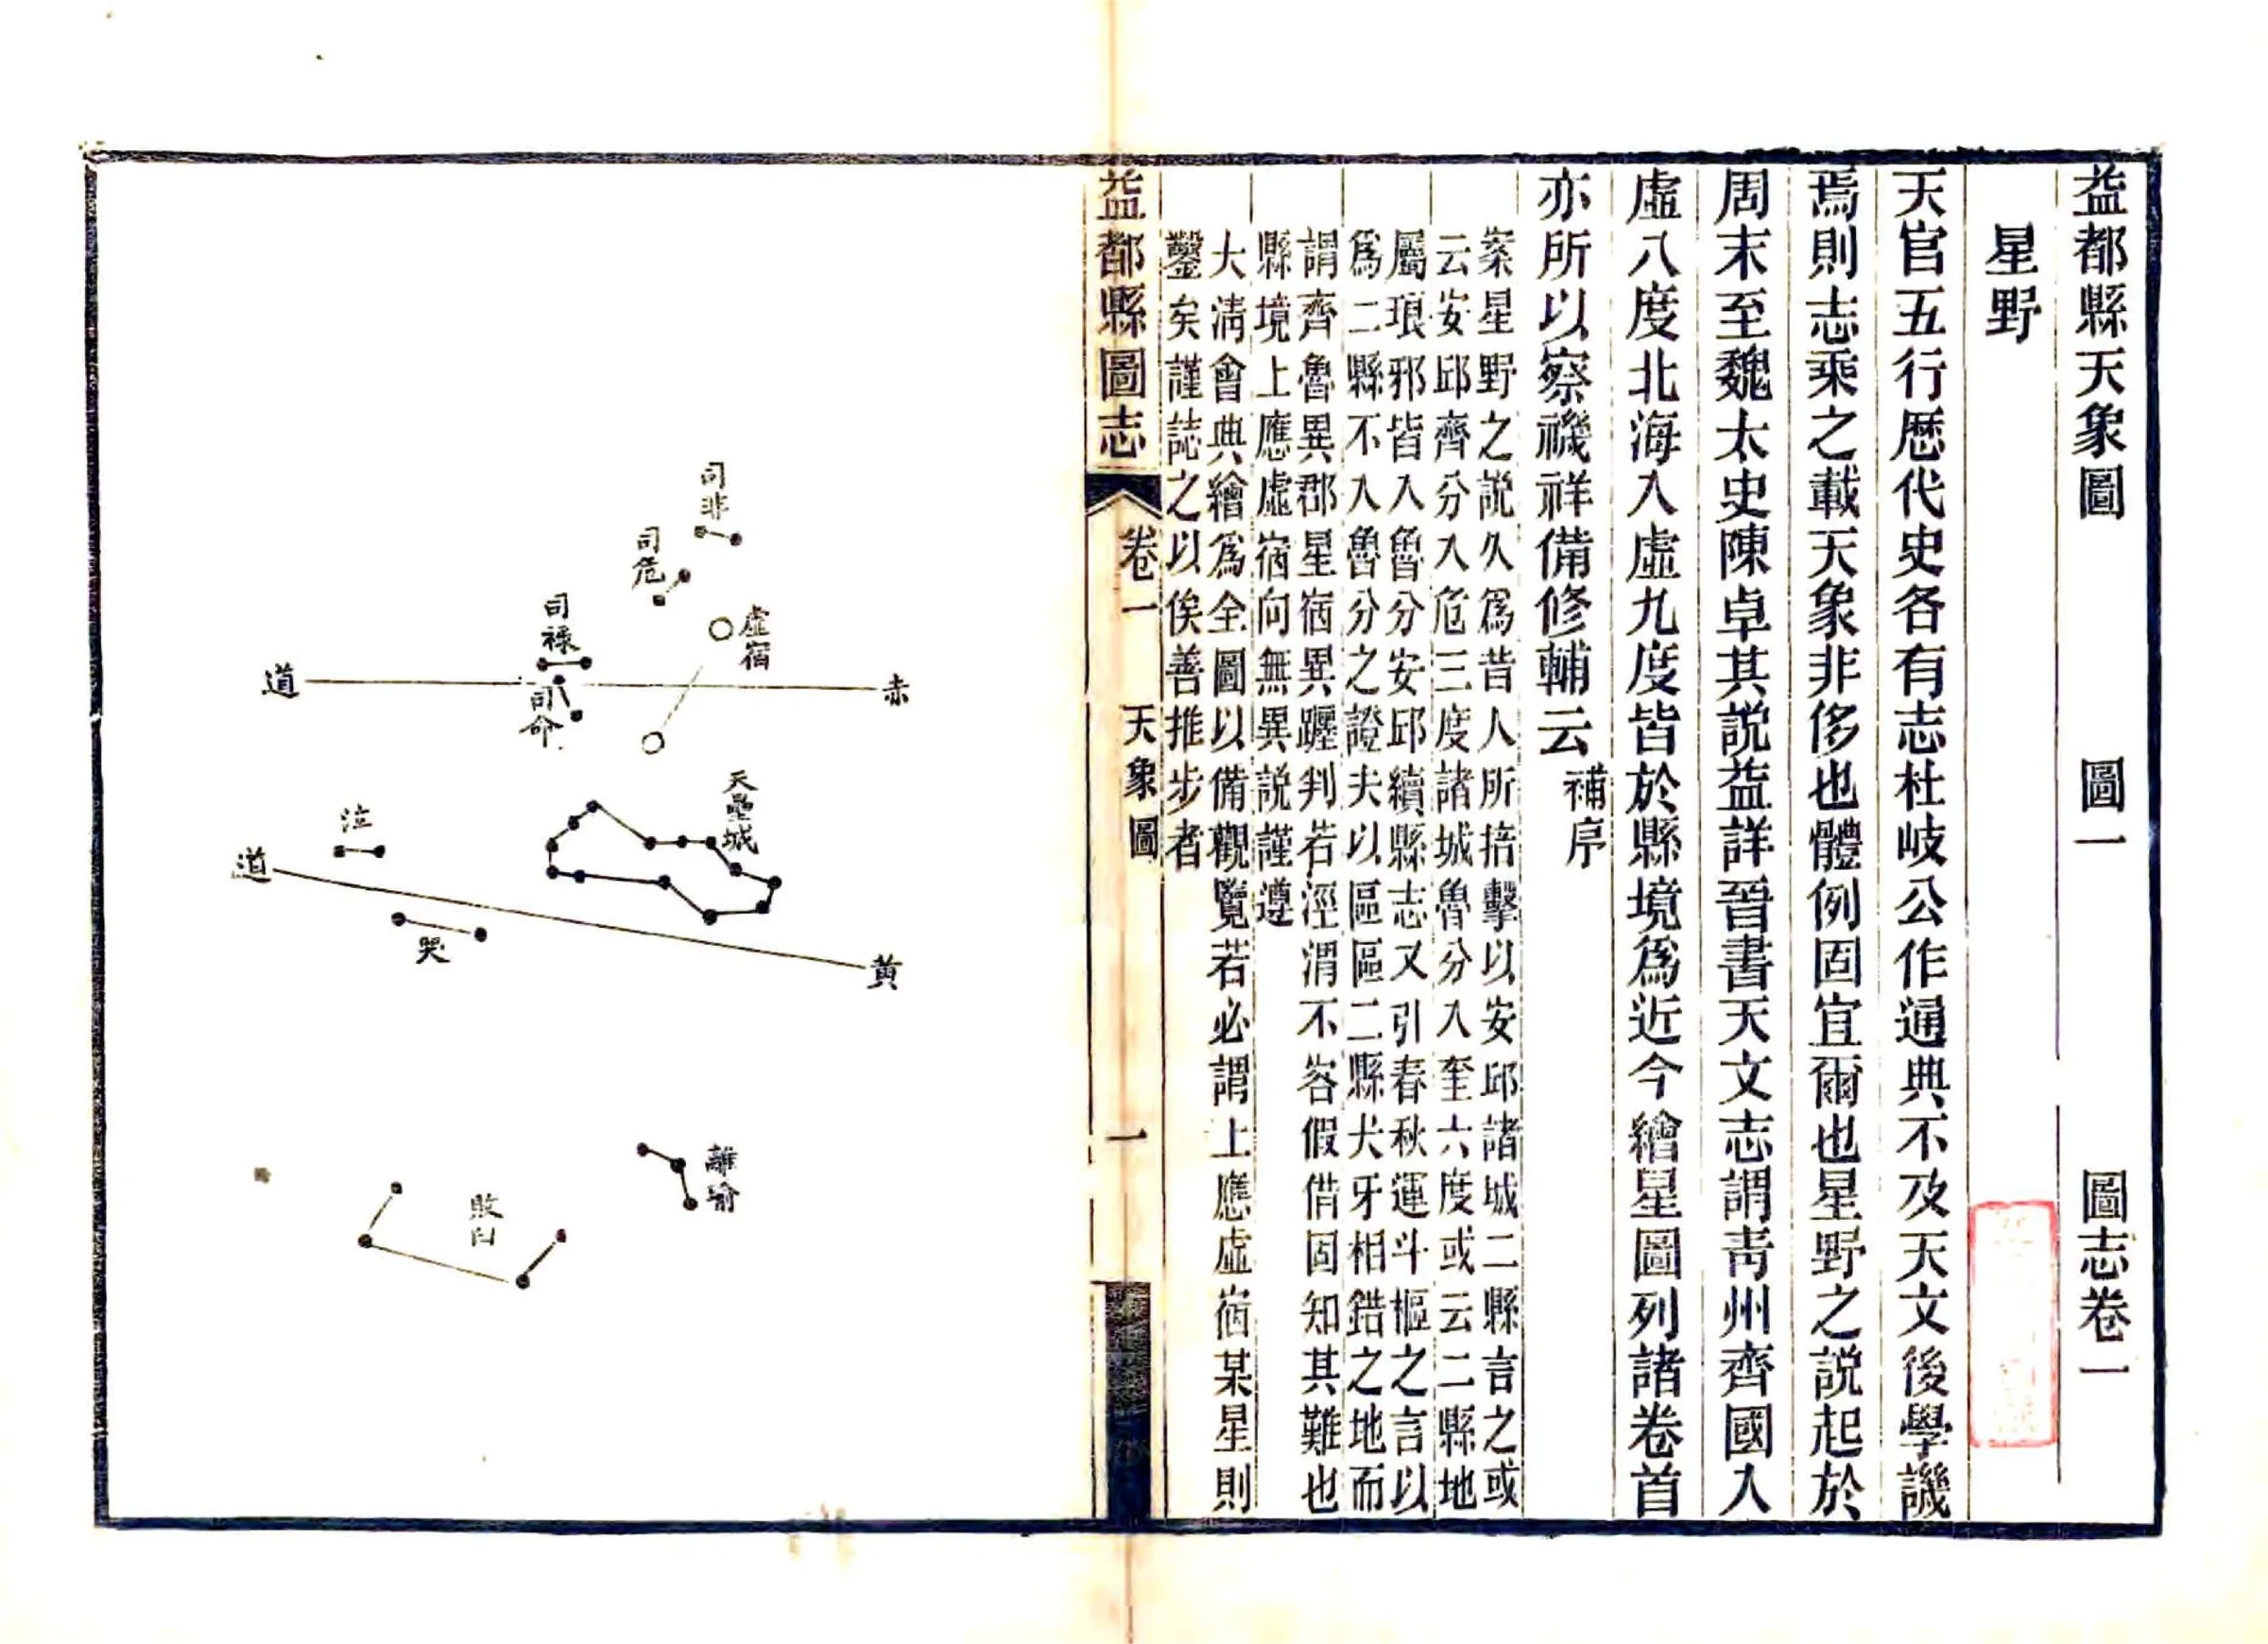 益都縣天象圖　圖一　圖志卷一
星野
天官五行歷代史各有志杜岐公作通典不及天文後學譏
焉則志乘之載天象非侈也體例固宜爾也星野之說起於
周末至魏太史陳卓其說益詳晉書天文志謂靑州齊國入
虛八度北海入虛九度皆於縣境爲近今繪星圖列諸卷首
亦所以察禨祥備修輔云補序
案星野之說久爲昔人所掊擊以安邱諸城二縣言之或
云安邱齊分入危三度諸城魯分入奎六度或云二縣地
屬琅邪皆入魯分安邱續縣志又引春秋運斗樞之言以
爲二縣不入魯分之證夫以區區二縣犬牙相錯之地而
謂齊魯異郡星宿異躔判若涇渭不容假借固知其難也
縣境上應虛宿向無異說謹遵
大淸會典繪爲全圖以備觀覽若必謂上應虛宿某星則
鑿矣謹誌之以俟善推步者
益都縣圖志　卷一　天象圖　一
司非
司危
虛宿
司祿
赤道
司命
天壘城
泣
黃道
哭
離瑜
敗臼